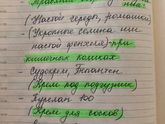 (Настой череды, ромашки)
- (Укропные семена или
настой фенхеля) - при
кишечных коликах
- Судокрем, Бепантен
- (Крем под подгузник)
- Пурелан 100
- (Крем для сосков)